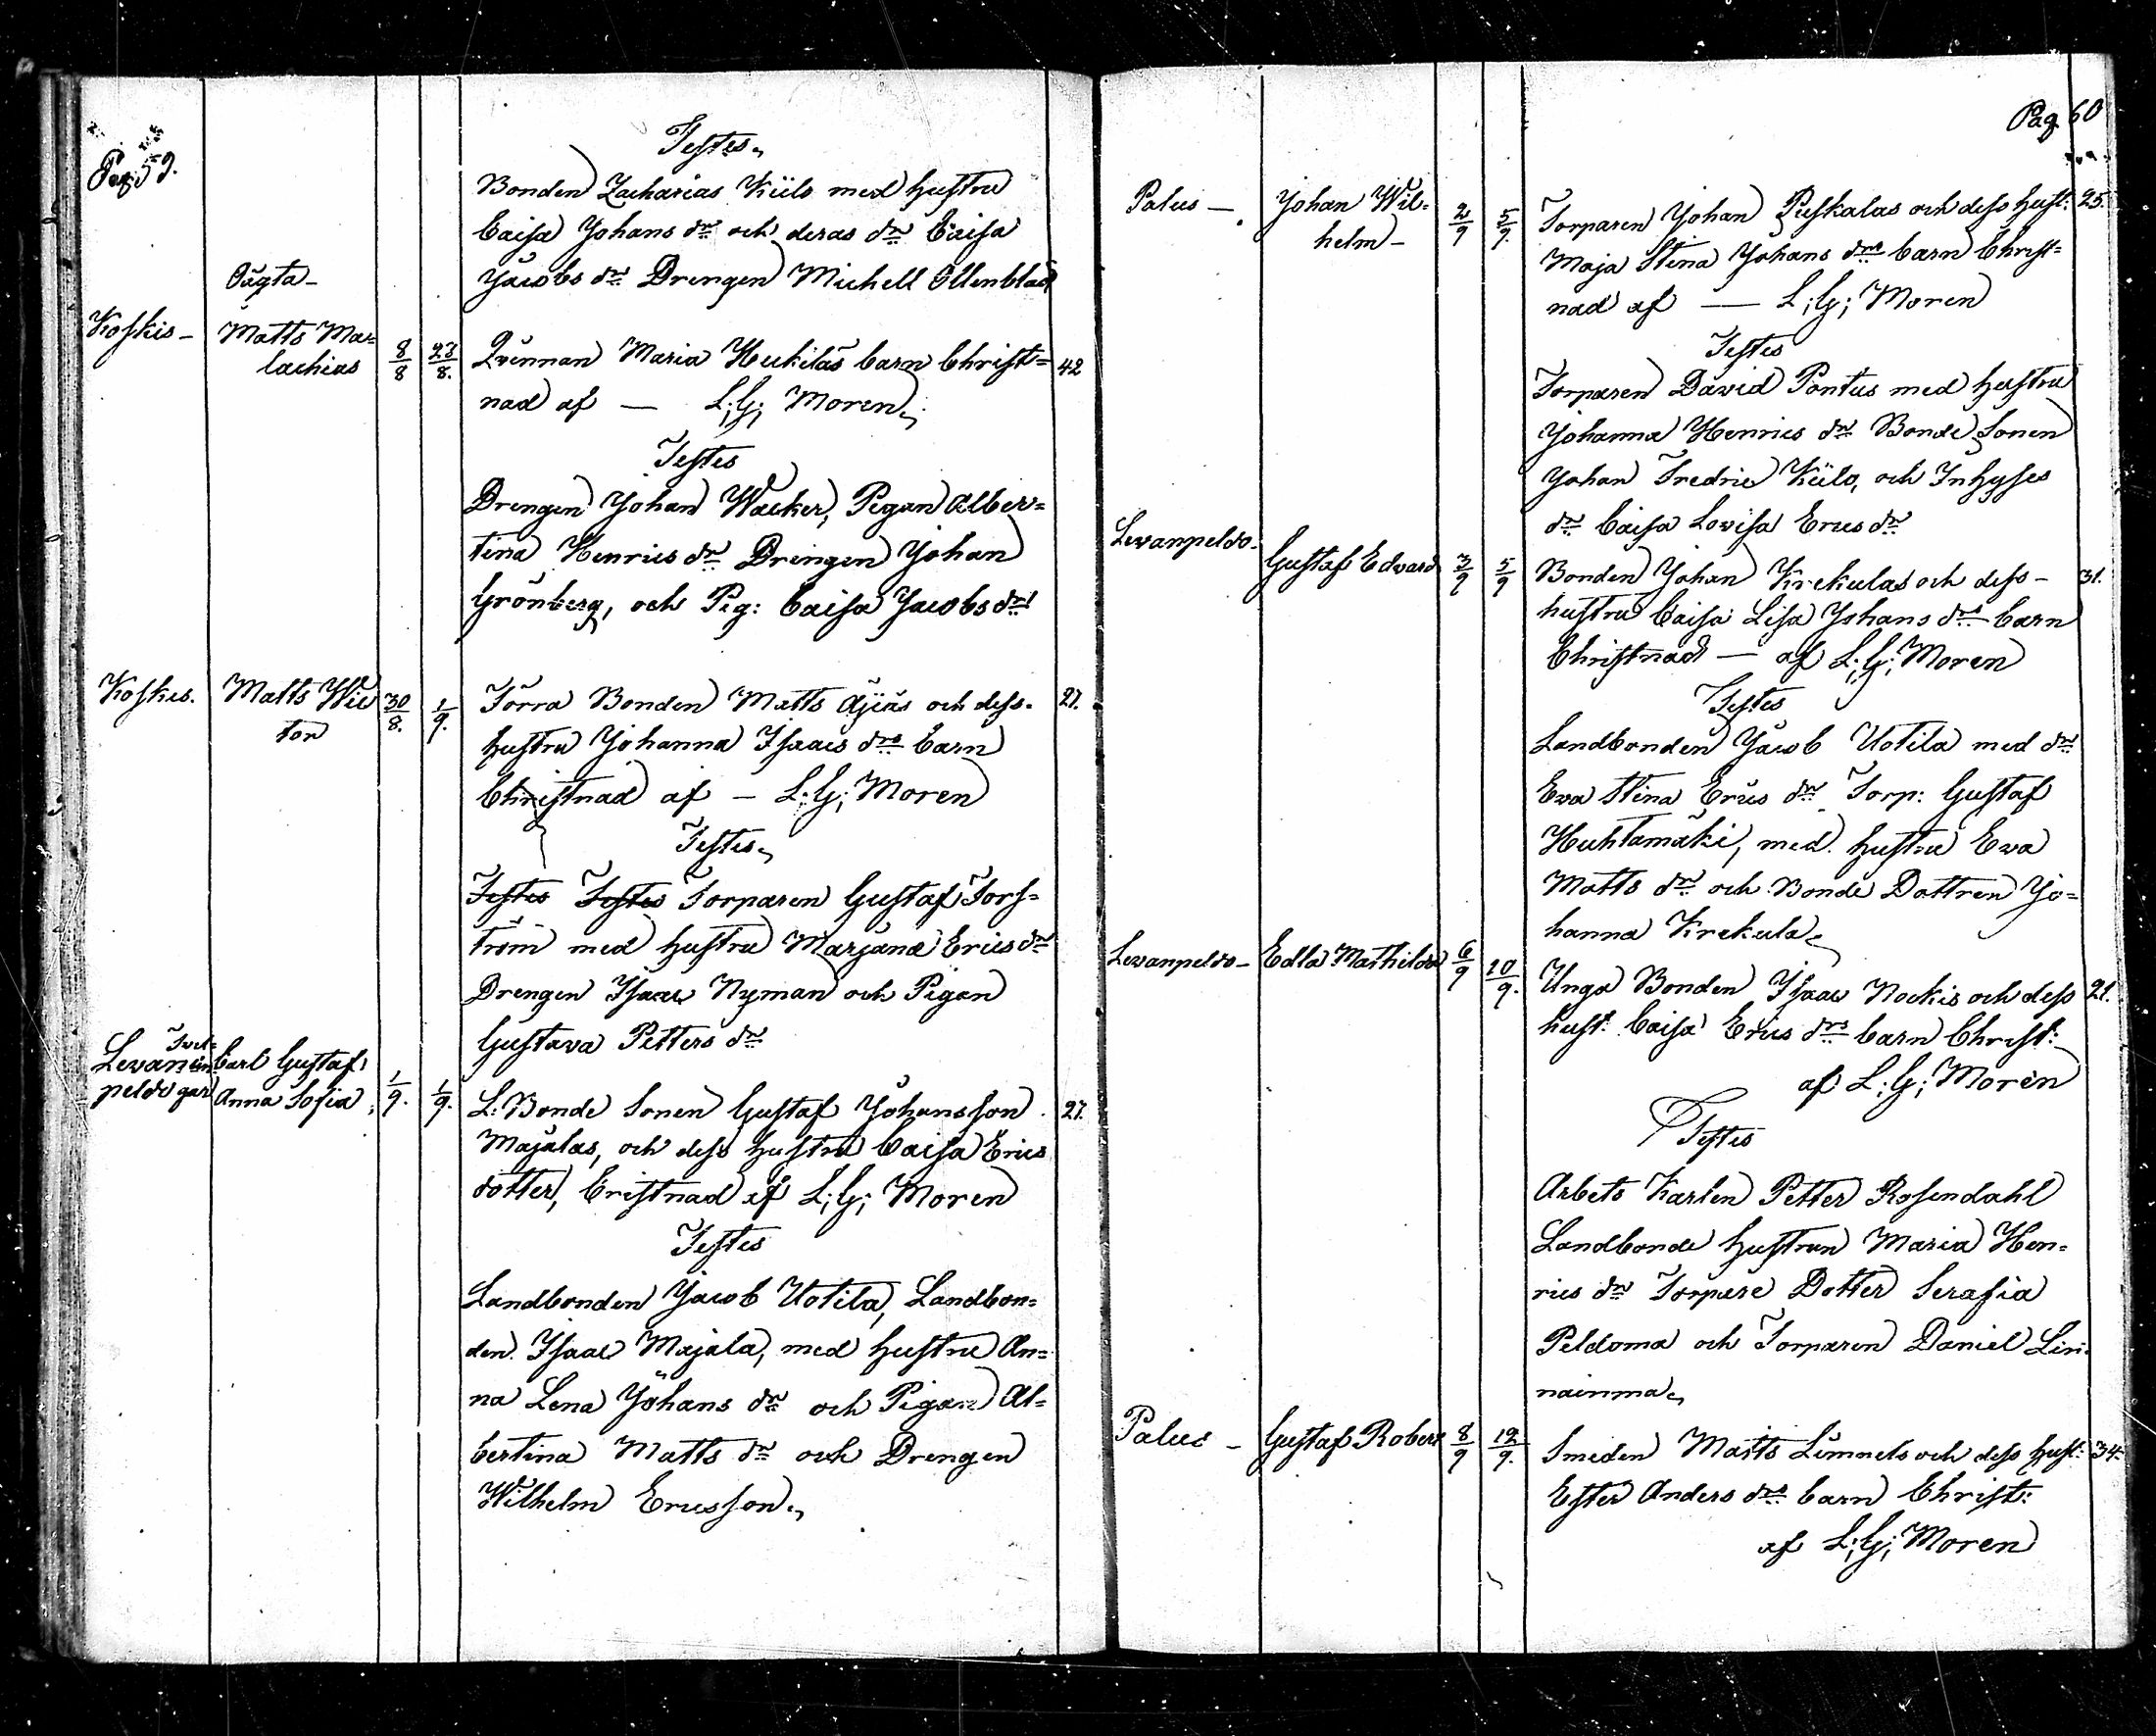 Pag. 59.
Testes
Bonden Zacharias Kiilo med hustru
Caisa Johans dr och deras dr Caisa
Jacobs dr Drengen Michell Ollenblad
Oägta
Koskis Matts Ma= 8/8 23/8. Qvinnan Maria Heikiläs barn Christ= 42
lachias nad af — L;G; Moren
Testes
Drengen Johan Wacker, Pigan Alber=
tina Henrics dr Drengen Johan
Grönberg, och Pig: Caisa Jacobs dr
Koskis. Matts Wic 30/8. 1/9. Förra Bonden Matts Äjiäs och dess 27.
tor hustru Johanna Isaacs drs barn
Christnad af — L;G; Moren
Testes
Testes Testes Torparen Gustaf Fors=
tröm med hustru Marjana Erics dr
Drengen Isaac Nyman och Pigan
Gustava Petters dr
Levanpeldo Carl Gustaf
Anna Sofia 1/9. 1/9. L: Bonde Sonen Gustaf Johansson 27.
Majalas, och dess hustru Caisa Erics
dotter, Cristnad af L;G; Moren
Testes
Landbonden Jacob Uotila, Landbon=
den Isaac Majala, med hustru An=
na Lena Johans dr och Pigan Al=
bertina Matts dr och Drengen
Wilhelm Ericsson
Pag 60
Palus — Johan Wil= 2/9 5/9. Torparen Johan Puskalas och dess hust: 25.
helm — Maja Stina Johans drs barn Christ=
nad af — L;G; Moren
Testes
Torparen David Pontus med hustru
Johanna Henrics dr Bonde Sonen
Johan Fredric Kiilo, och Inhyses
dr Caisa Lovisa Erics dr
Levanpeldo Gustaf Edvard 3/9 5/9 Bonden Johan Krekulas och dess — 31.
hustru Caisa Lisa Johans drs barn
Christnad — af L;G; Moren
Testes
Landbonden Jacob Uotila med dr
Eva Stina Erics dr Torp: Gustaf
Huhtamäki, med hustru Eva
Matts dr och Bonde Dottren Jo=
hanna Krekula
Levanpeldo — Edla Mathilda 6/9 10/9. Unga Bonden Isaac Nockis och dess 21.
hust: Caisa Erics drs barn Christ:
af L;G; Moren
Testes
Arbets Karlen Petter Rosendahl
Landbonde hustrun Maria Hen=
rics dr Torpare Dotter Serafia
Peldoma och Torparen Daniel Lin=
nainmaa
Palus — Gustaf Robert 8/9 12/9. Smeden Matts Limnels och dess hust: 34.
Ester Anders drs barn Christ:
af L;G; Moren